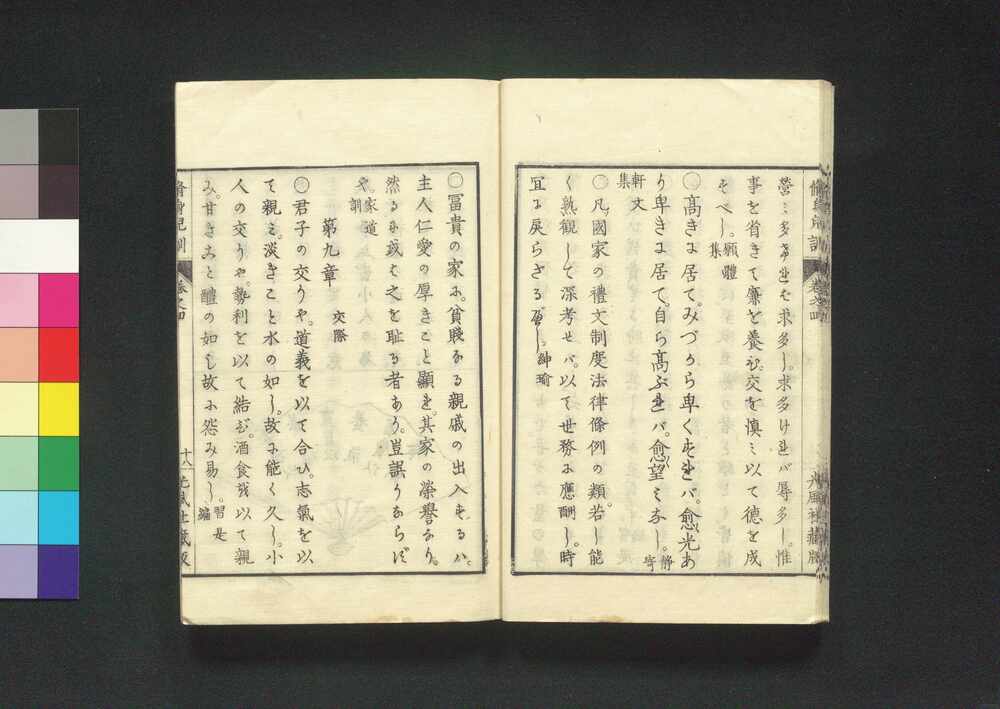 脩身児訓
卷之四
營ミ多ケレバ求多し。求多けレバ辱多し。惟
事を省きて廉を養ひ。交を慎ミ以て德を成
すべし。願體集
〇高きに居て。みづから卑くすレバ。愈光あ
り卑きに居て。自ら高ぶレバ。愈望ミなし。靜寄
軒文集
〇凡國家の禮文制度法律條例の類。若し能
く熟觀して深考せバ。以て世務に應酬し。時
宜に戻らざるべし。紳瑜
〇冨貴の家に。貧賤なる親戚の出入するハ。
主人仁愛の厚きこと顯れ。其家の榮譽なり。
然るに或は之を耻る者あり。豈誤りならずや。家道訓
第九章 交際
〇君子の交りや。道義を以て合ひ。志氣を以
て親ミ。淡きこと水の如し。故に能く久し。小
人の交りや。勢利を以て結び。酒食を以て親
み。甘きこと醴の如し故に怨み易し。習是編
脩身児訓
卷之四
十八